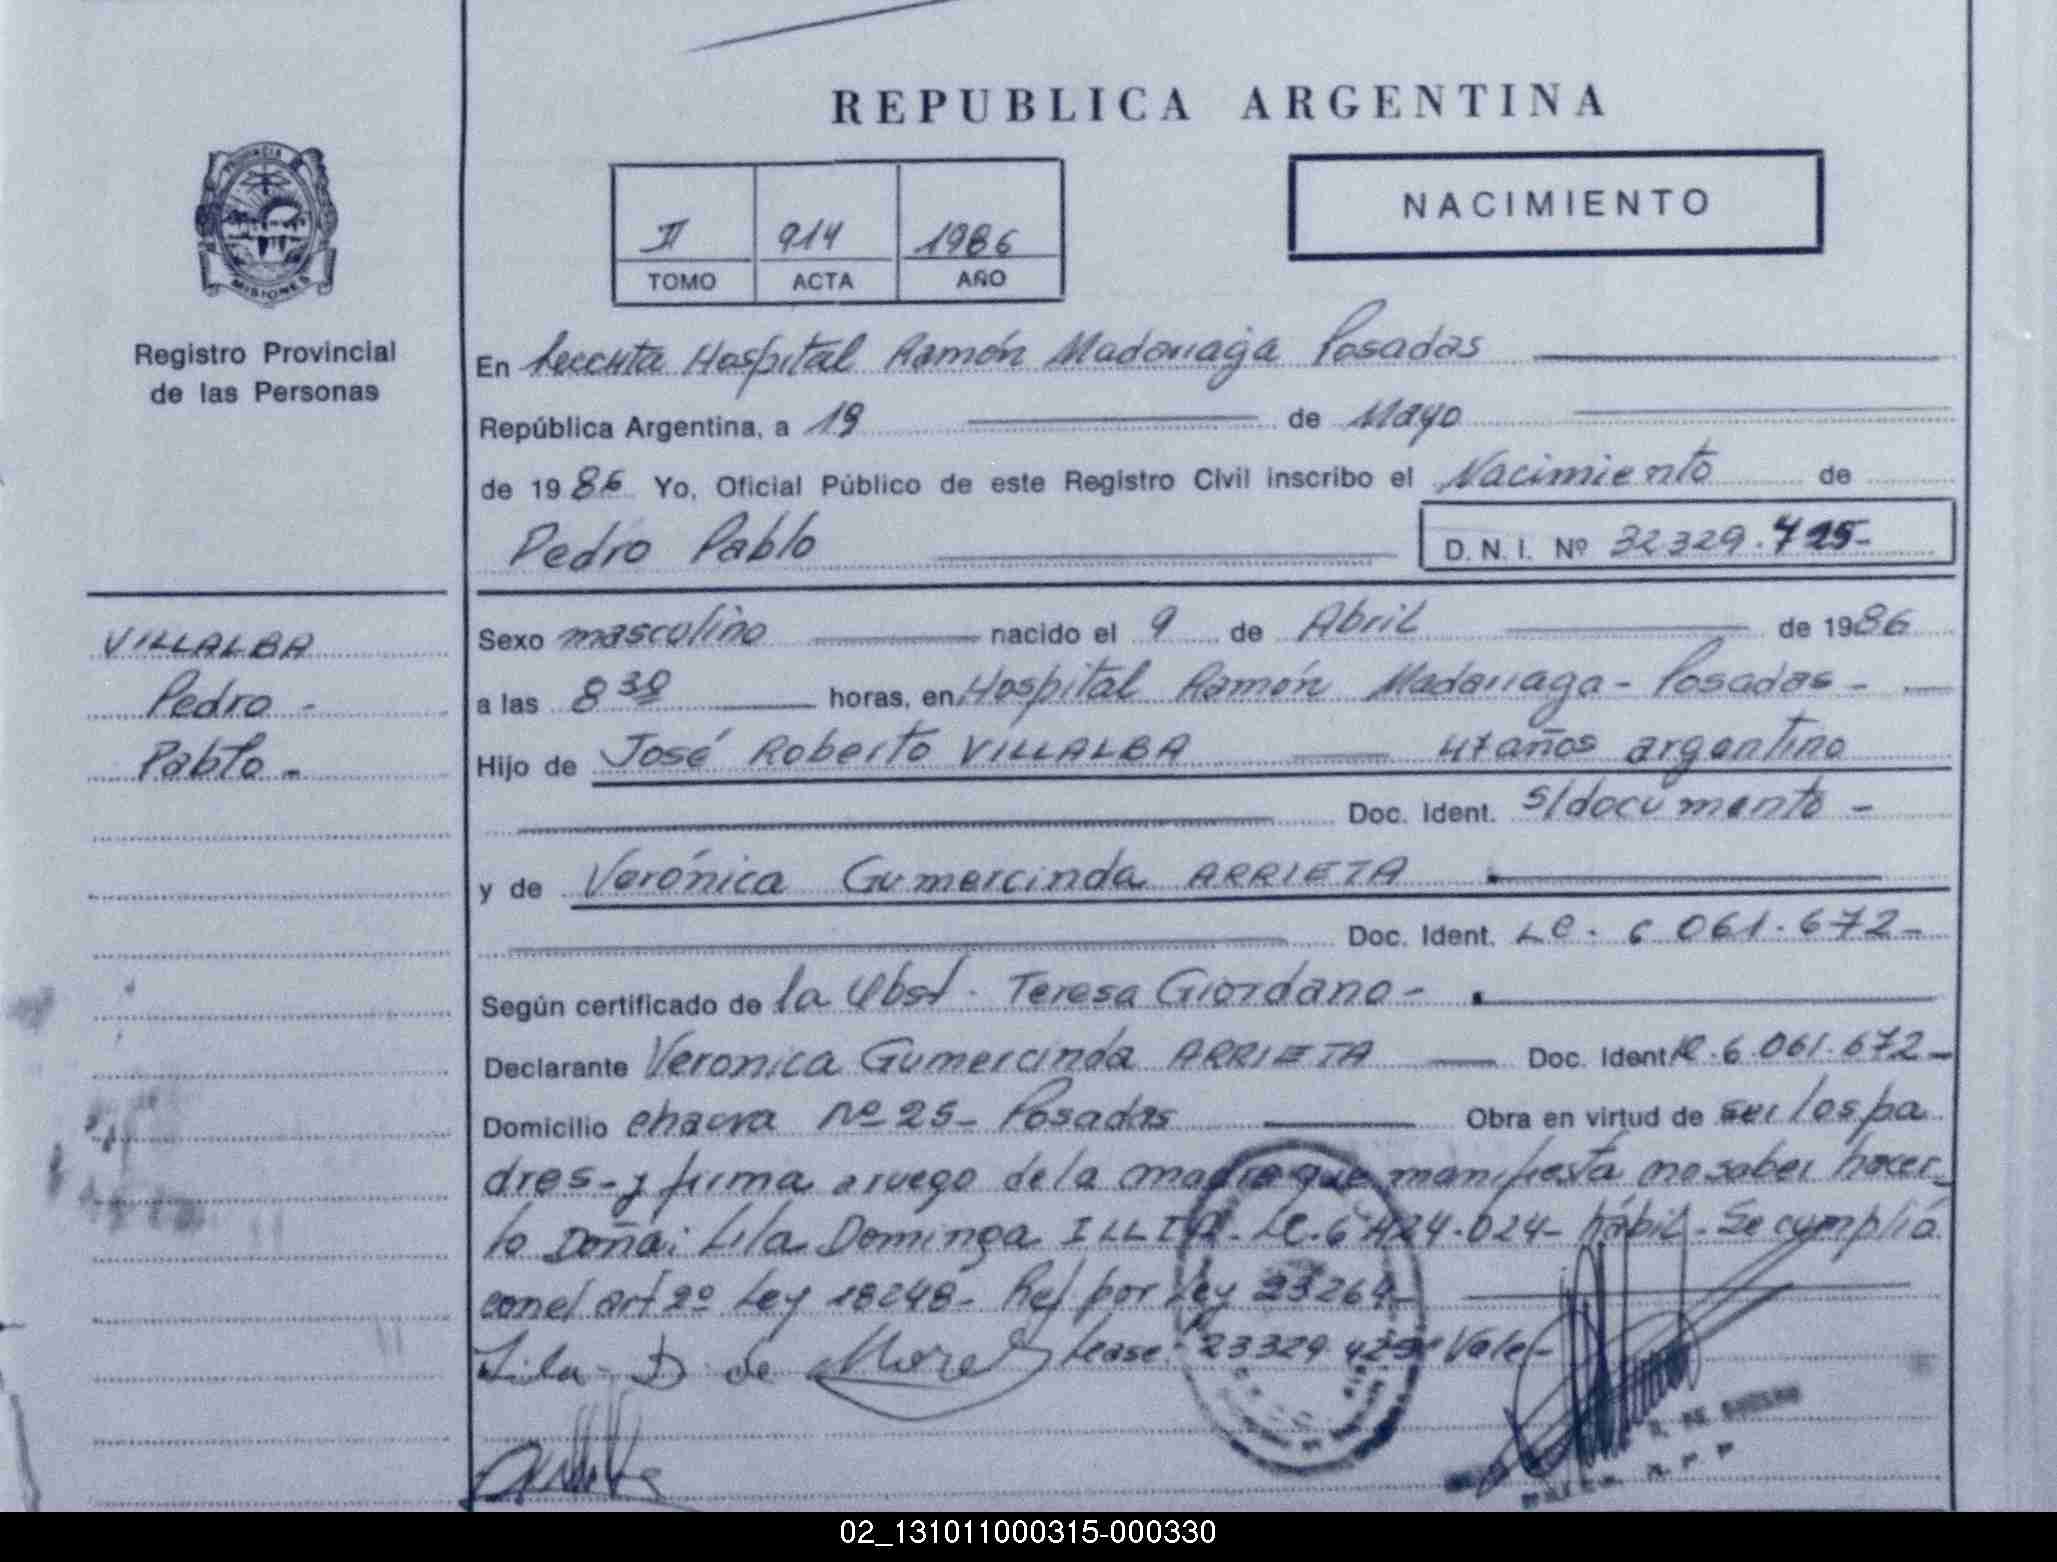 REPUBLICA ARGENTINA
PROVINCIA
MISIONES
Registro Provincial
de las Personas
II 914 1986
TOMO ACTA AÑO
NACIMIENTO
En Hospital Ramón Madariaga Posadas
República Argentina, a 19 de Mayo
de 1986 Yo, Oficial Público de este Registro Civil inscribo el Nacimiento de
Pedro Pablo D. N. I. Nº 32329.425-
VILLALBA
Pedro -
Pablo -
Sexo masculino nacido el 9 de Abril de 1986
a las 8 30 horas, en Hospital Ramón Madariaga - Posadas -
Hijo de José Roberto VILLALBA 47 años argentino
Doc. Ident. S/documento -
y de Verónica Gumercinda ARRIETA
Doc. Ident. LC. 6 061.672-
Según certificado de la Obst. Teresa Giordano -
Declarante Veronica Gumercinda ARRIETA Doc. Ident LC. 6.061.672-
Domicilio chacra Nº 25- Posadas Obra en virtud de ser los pa
dres- y firma a ruego de la madre que manifiesta no saber hacer-
lo Doña: Lila Dominga ILLIA- LC. 6 424.024- hábil - Se cumplió
con el art 2º Ley 18248- Ref por Ley 23264-
Lila D. de Morel Lease: 23329 425 Vale-
02_131011000315-000330